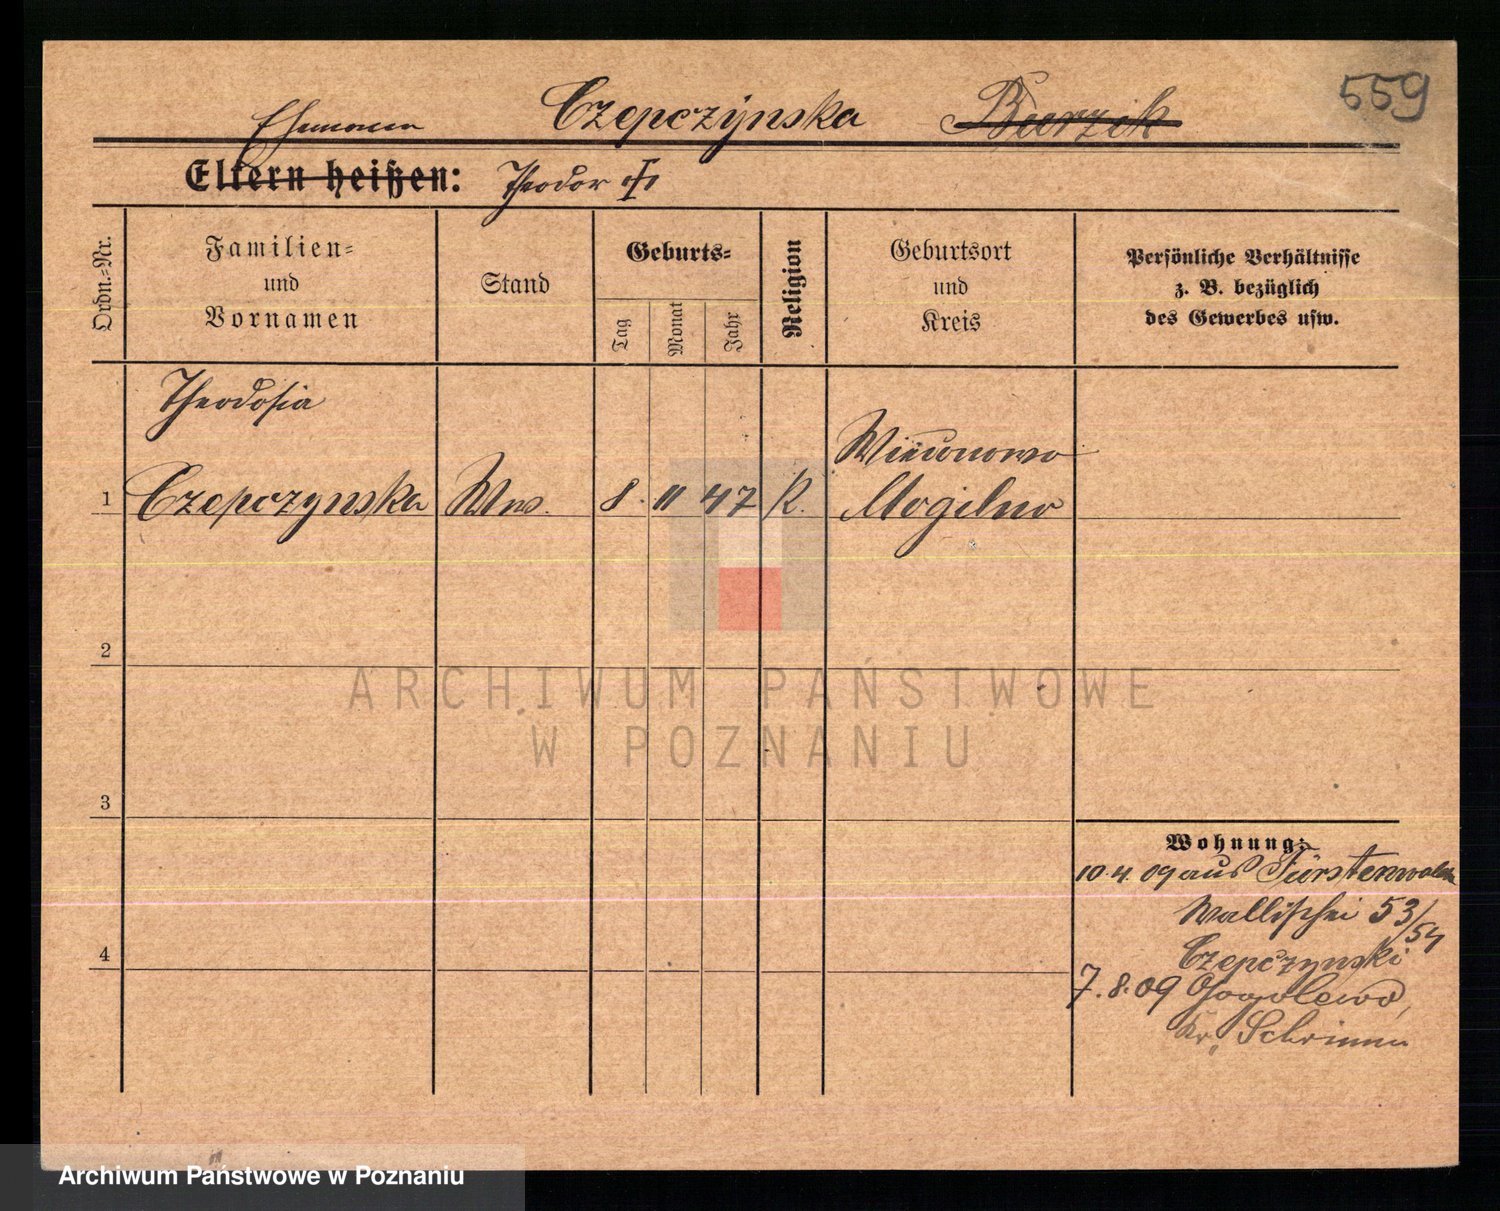 559
Czepczynska Burzik
Ehemann
Eltern heißen: Theodor
Ordn.-Nr.
Familien-
und
Vornamen
Stand
Geburts-
Tag
Monat
Jahr
Religion
Geburtsort
und
Kreis
Persönliche Verhältnisse
z. B. bezüglich
des Gewerbes usw.
Theodosia
1 Czepczynska Ww. 8. 11 47 K.
Mogilno
2
ARCHIWUM PAŃSTWOWE
W POZNANIU
3
Wohnung:
10.4.09 aus Fürstenwalde
Wallischei 53/54
Czepczynski
4
7.8.09
Kr. Schrimm
Archiwum Państwowe w Poznaniu